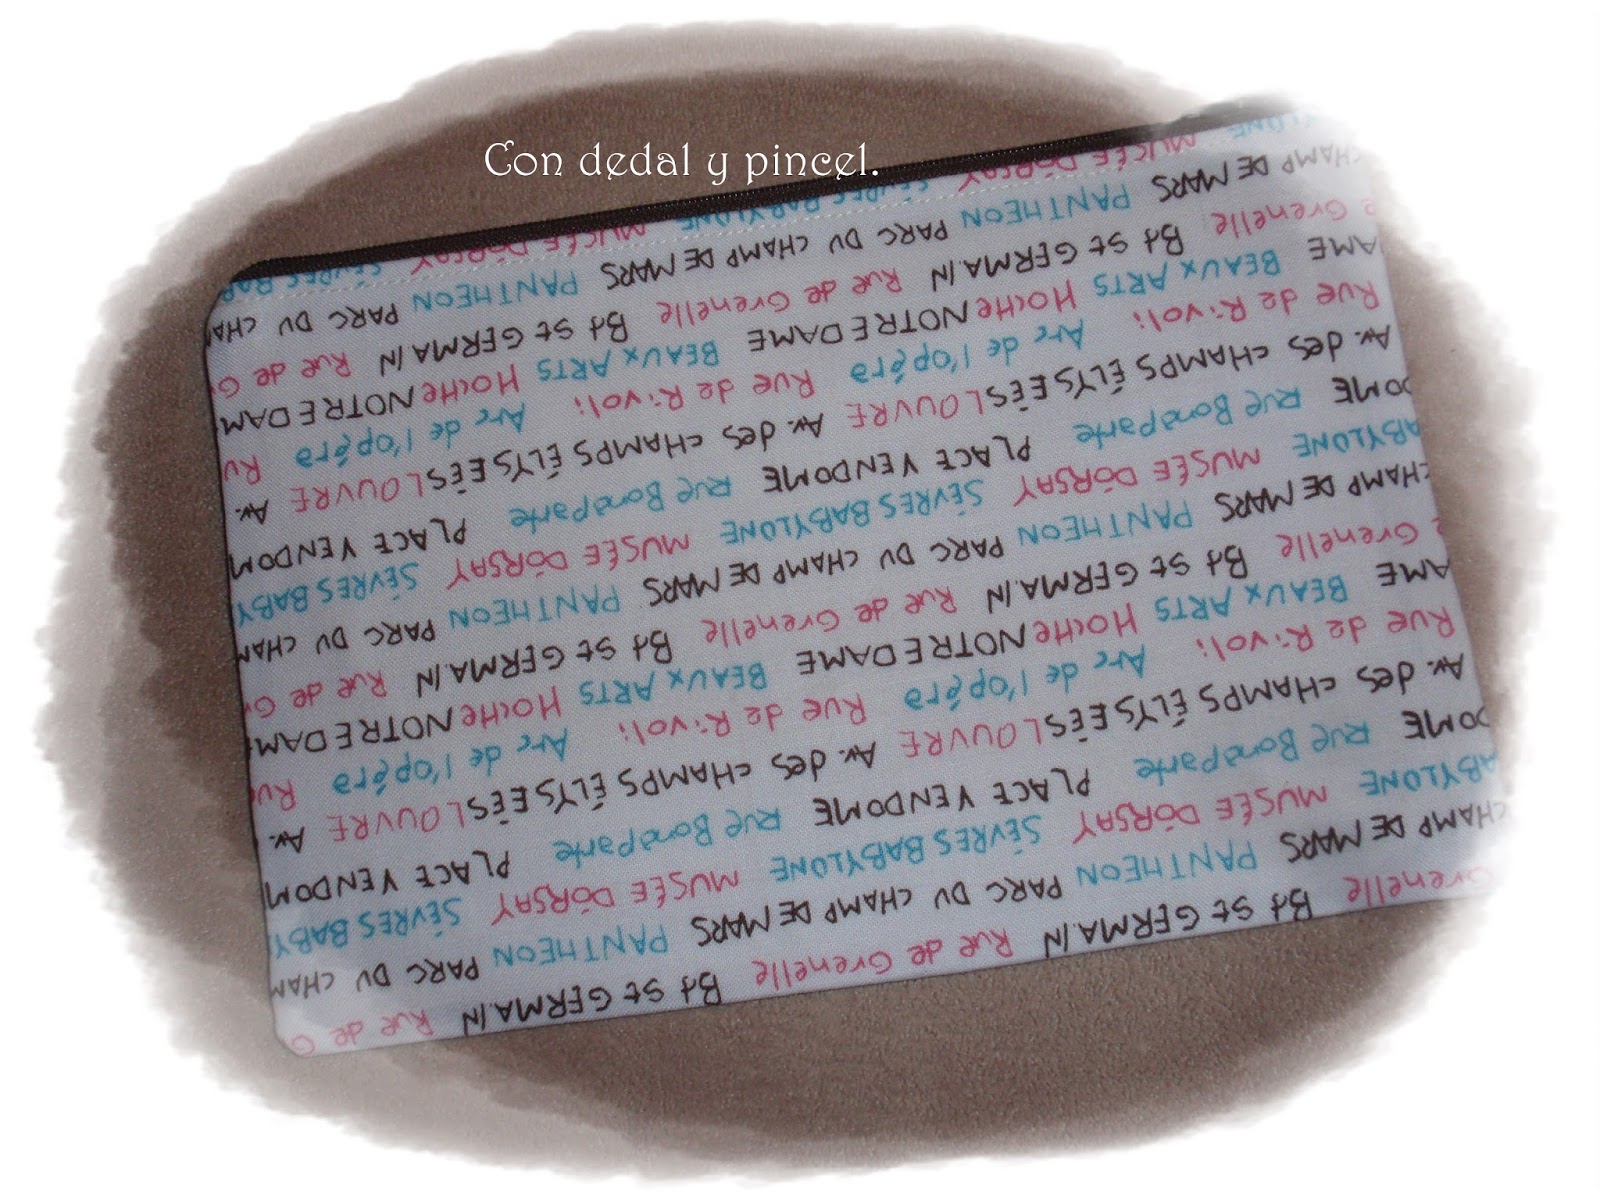 Con dedal y pincel.
Grenelle Bd St GERMAIN Rue de Grenelle Bd St GERMAIN Rue de G
CHAMP DE MARS PANTHEON PARC DU CHAMP DE MARS PANTHEON PARC DU CHAM
ABYLONE MUSÉE DÓRSAY SÈVRES BABYLONE MUSÉE DÓRSAY SÈVRES BABY
DOME Rue Bonaparte PLACE VENDOME Rue Bonaparte PLACE VENDOM
Av. des CHAMPS ÉLYSEÉS LOUVRE Av. des CHAMPS ÉLYSEÉS LOUVRE Av.
Rue de Rivoli Arc de l'opéra Rue de Rivoli Arc de l'opéra Ru
AME BEAUX ARTS Hoche NOTRE DAME BEAUX ARTS Hoche NOTRE DAM
e Grenelle Bd St GERMAIN Rue de Grenelle Bd St GERMAIN Rue de G
CHAMP DE MARS PANTHEON PARC DU CHAMP DE MARS PANTHEON PARC DU CHAM
ABYLONE MUSÉE DÓRSAY SÈVRES BABYLONE MUSÉE DÓRSAY SÈVRES BABY
DOME Rue Bonaparte PLACE VENDOME Rue Bonaparte PLACE VENDOM
Av. des CHAMPS ÉLYSEÉS LOUVRE Av. des CHAMPS ÉLYSEÉS LOUVRE Av.
Rue de Rivoli Arc de l'opéra Rue de Rivoli Arc de l'opéra Ru
AME BEAUX ARTS Hoche NOTRE DAME BEAUX ARTS Hoche NOTRE DAM
e Grenelle Bd St GERMAIN Rue de Grenelle Bd St GERMAIN Rue de G
CHAMP DE MARS PANTHEON PARC DU CHAMP DE MARS PANTHEON PARC DU CHA
YLONE MUSÉE DÓRSAY SÈVRES BABYLONE MUSÉE DÓRSAY SÈVRES BAB